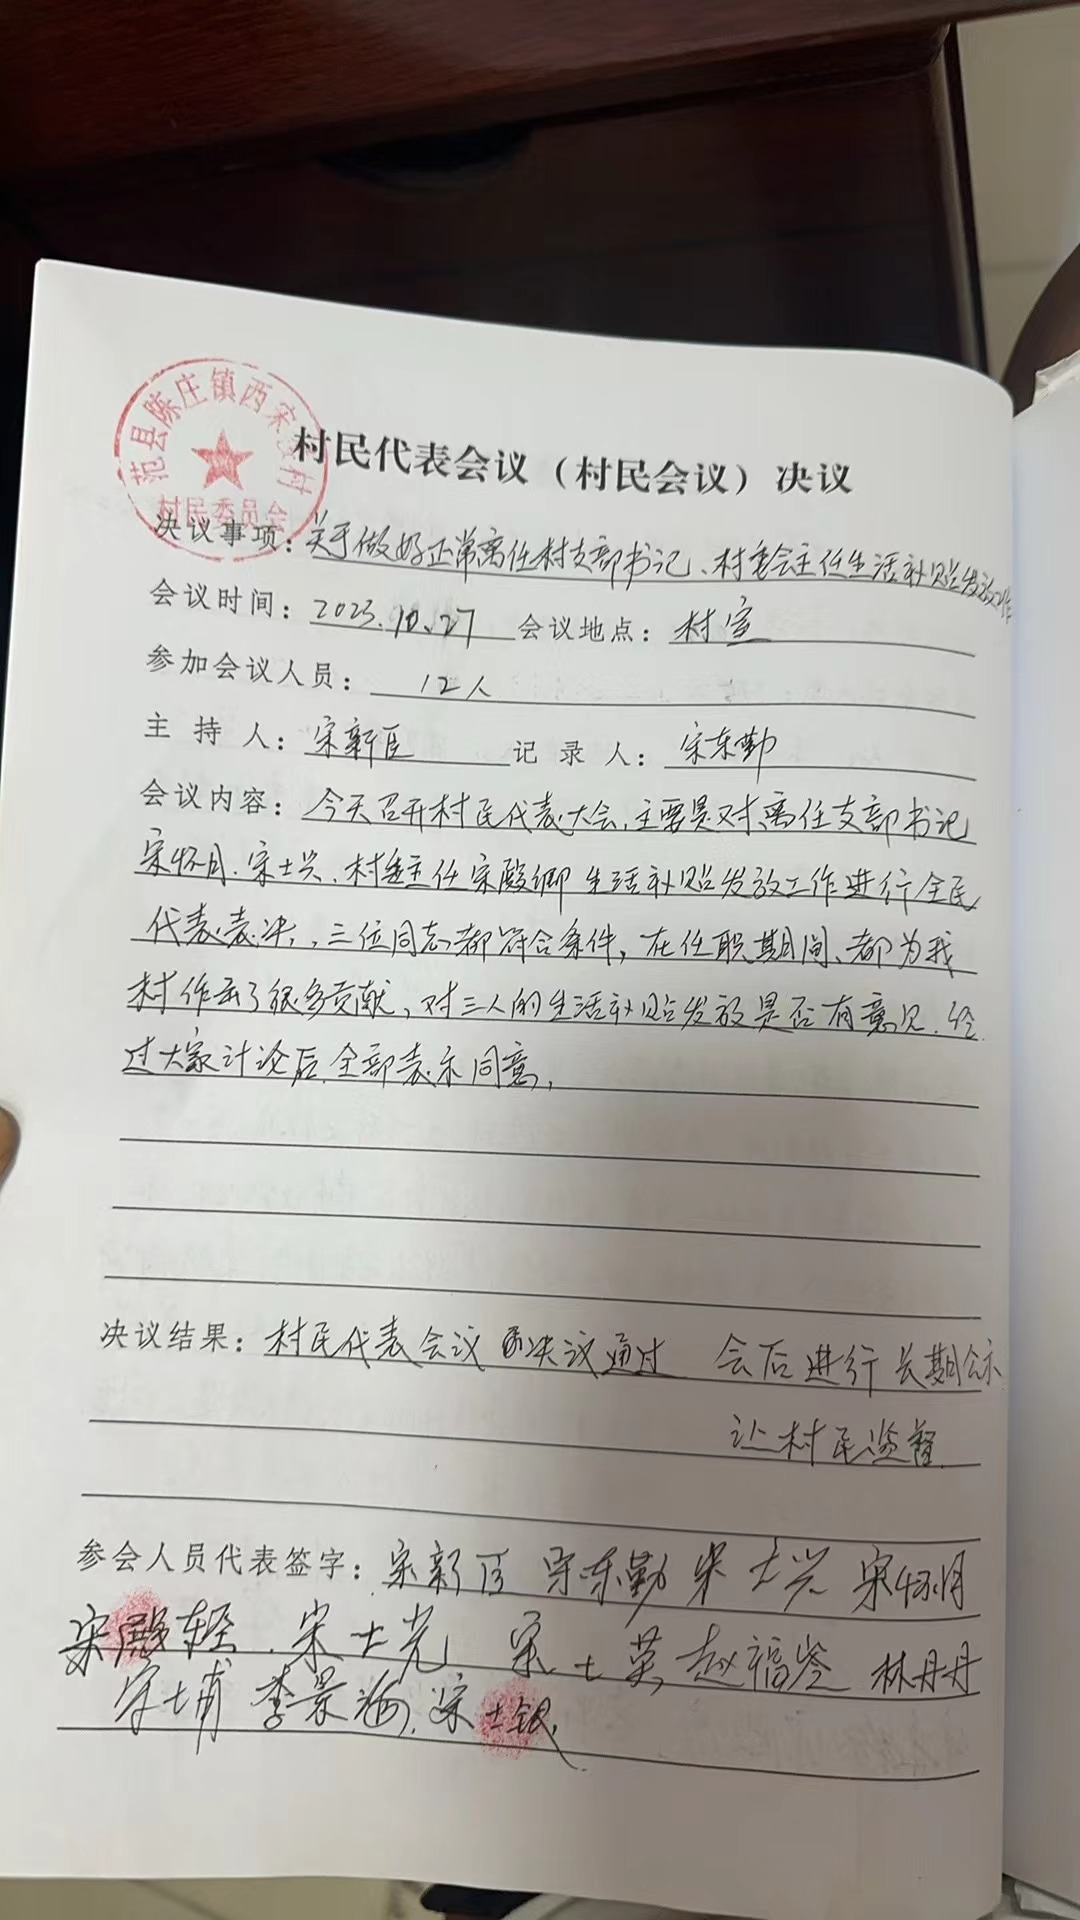 范县陈庄镇西宋 村
村民委员会
村民代表会议（村民会议）决议
决议事项：关于做好正常离任村支部书记、村委会主任生活补贴发放工作
会议时间：2023.10.27 会议地点：村室
参加会议人员：12人
主 持 人：宋新臣 记 录 人：宋东勤
会议内容：今天召开村民代表大会，主要是对离任支部书记
宋怀月、宋士兴、村委主任宋殿卿生活补贴发放工作进行全民
代表表决，三位同志都符合条件，在任职期间、都为我
村作出了很多贡献，对三人的生活补贴发放是否有意见，经
过大家讨论后，全部表示同意，
决议结果：村民代表会议 决议通过 会后进行长期公示
让村民监督
参会人员代表签字：宋新臣 宋东勤 宋士兴 宋怀月
宋殿轻 宋士光 宋士英 赵福岺 林丹丹
宋士甫 李景海 宋士银